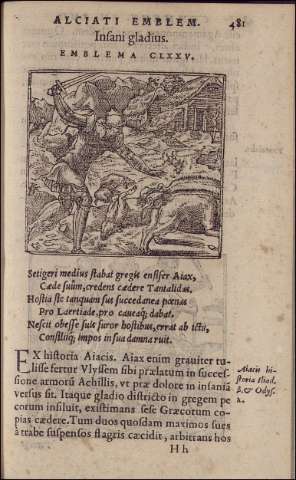 ALCIATI EMBLEM. 481
Insani gladius.
EMBLEMA CLXXV.
Setigeri medius stabat gregis ensifer Aiax,
Cæde suûm, credens cædere Tantalidas.
Hostia sic tanquam sus succedanea pœnas
Pro Laertiade, pro caueaq; dabat.
Nescit obesse suis furor hostibus, errat ab ictu,
Consilijq; impos in sua damna ruit.
EX historia Aiacis. Aiax enim grauiter tu-
lisse fertur Vlyssem sibi prælatum in succes-
sione armorũ Achillis, vt præ dolore in insaniã
versus sit. Itaque gladio districto in gregem pe
corum insiluit, existimans sese Græcorum co-
pias cædere. Tum duos quosdam maximos sues
à trabe suspensos flagris cæcidit, arbitrans hos
Aiacis hi-
storia Iliad.
β. & Odyss.
λ.
H h